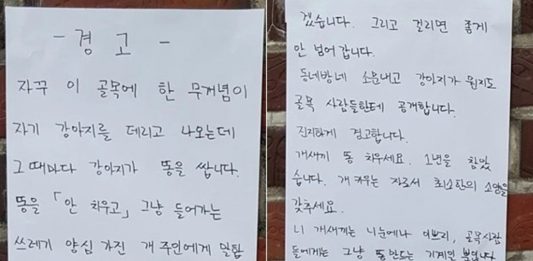 - 경 고 -
자꾸 이 골목에 한 무개념이
자기 강아지를 데리고 나오는데
그때마다 강아지가 똥을 쌉니다.
똥을 「안 치우고」 그냥 들어가는
쓰레기 양심 가진 개 주인에게 말함
겠습니다. 그리고 걸리면 좋게
안 넘어갑니다.
동네방네 소문내고 강아지가 뭔지도
골목 사람들한테 공개합니다.
진지하게 경고합니다.
개새끼 똥 치우세요. 2년을 참았
습니다. 개 키우는 자로서 최소한의 소양을
갖추세요.
니 개새끼는 니눈에나 이쁘지, 골목사람
들에게는 그냥 똥만드는 기계일 뿐입니다